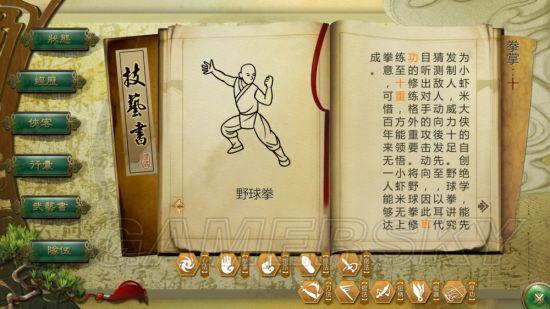 狀態
經歷
俠客
行囊
武藝書
隊伍
技藝書
野球拳
拳掌：十
为小虾米大侠的自创绝学，能先
发制人，威力十足。野球拳讲究
猜测敌人动向後发先至，以耳代
目听出对手的攻击动向，因此聽
功的修练格外重要。将野球拳修
練至十重，方能领悟小虾米无上
拳意，可惜百年来无一人能够达
成。
GAMERSKY